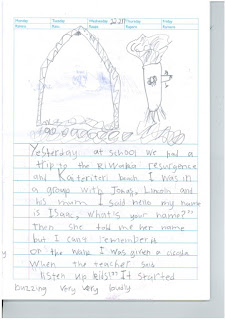 Monday Tuesday Wednesday Thursday Friday
Yesterday at school we had a
trip to the Riwaka resurgence
and Kaiteriteri beach I was in
a group with Jonas, Lincoln and
his mum I said hello my name
is Isaac, what's your name?"
Then she told me her name
but I cant remember it
On the walk I was given a cicada
When the teacher said
listen up kids!" It started
buzzing very very loudly